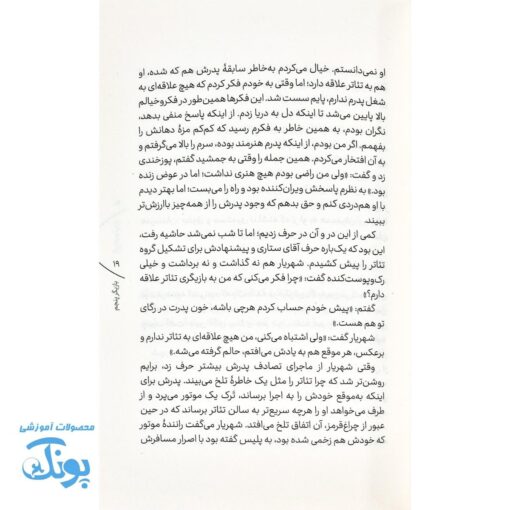 او نمی‌دانستم. خیال می‌کردم به‌خاطر سابقهٔ پدرش هم که شده، او
هم به تئاتر علاقه دارد؛ اما وقتی به خودم فکر کردم که هیچ علاقه‌ای به
شغل پدرم ندارم، پایم سست شد. این فکرها همین‌طور در فکروخیالم
بالا پایین می‌شد تا اینکه دل به دریا زدم. از اینکه پاسخ منفی بدهد،
نگران بودم، به همین خاطر به فکرم رسید که کم‌کم مزهٔ دهانش را
بفهمم. اگر من بودم، از اینکه پدرم هنرمند بوده، سرم را بالا می‌گرفتم و
به آن افتخار می‌کردم. همین جمله را وقتی به جمشید گفتم، پوزخندی
زد و گفت: «ولی من راضی بودم هیچ هنری نداشت؛ اما در عوض زنده
بود.» به نظرم پاسخش ویران‌کننده بود و راه را می‌بست؛ اما بهتر دیدم
با او هم‌دردی کنم و حق بدهم که وجود پدرش را از همه‌چیز باارزش‌تر
ببیند.
کمی از این در و آن در حرف زدیم؛ اما تا شب نمی‌شد حاشیه رفت،
این بود که یک‌باره حرف آقای ستاری و پیشنهادش برای تشکیل گروه
تئاتر را پیش کشیدم. شهریار هم نه گذاشت و نه برداشت و خیلی
رک‌وپوست‌کنده گفت: «چرا فکر می‌کنی که من به بازیگری تئاتر علاقه
دارم؟»
گفتم: «پیش خودم حساب کردم هرچی باشه، خون پدرت در رگای
تو هم هست.»
شهریار گفت: «ولی اشتباه می‌کنی، من هیچ علاقه‌ای به تئاتر ندارم و
برعکس، هر موقع هم به یادش می‌افتم، حالم گرفته می‌شه.»
وقتی شهریار از ماجرای تصادف پدرش بیشتر حرف زد، برایم
روشن‌تر شد که چرا تئاتر را مثل یک خاطرهٔ تلخ می‌بیند. پدرش برای
اینکه به‌موقع خودش را به اجرا برساند، تَرک یک موتور می‌پرد و از
طرف می‌خواهد او را هرچه سریع‌تر به سالن تئاتر برساند که در حین
عبور از چراغ‌قرمز، آن اتفاق تلخ می‌افتد. شهریار می‌گفت رانندهٔ موتور
که خودش هم زخمی شده بود، به پلیس گفته بود با اصرار مسافرش
۱۹
بازیگر پنجم
محصولات آموزشی
پونک